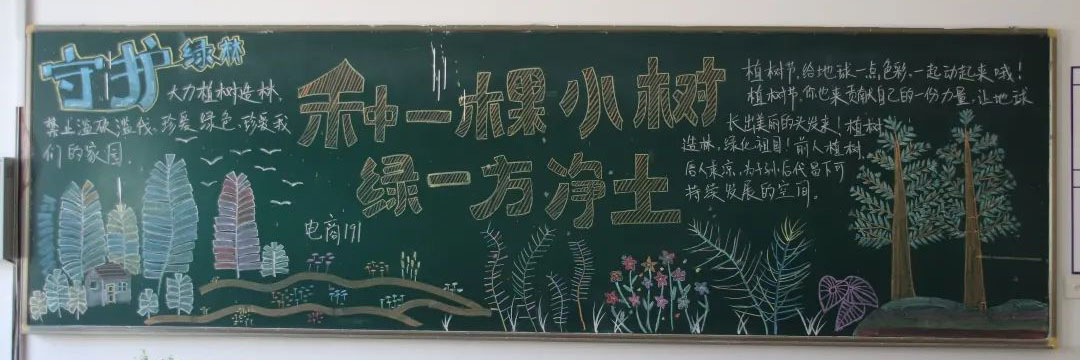 守护绿林
大力植树造林、
禁止滥砍滥伐,珍爱绿色,珍爱我
们的家园
种一棵小树
绿一方净土
电商191
植树节,给地球一点色彩,一起动起来哦!
植树节,你也来贡献自己的一份力量,让地球
长出美丽的头发来!植树
造林,绿化祖国!前人植树,
后人乘凉,为子孙后代留下可
持续发展的空间。